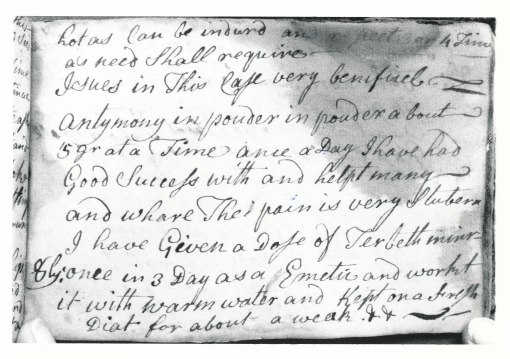 hot as Can be indurd and a peeteas 4 Time
as need Shall require
Isues in This Case very benifisel
antymony in pouder in pouder about
5 gr at a Time once a Day I have had
Good Success with and helpt many
and whare The pain is very Stubern
I have Given a Dose of Terbeth miner
8 G: once in 3 Day as a Emetic and workt
it with warm water and Kept on a Fresh
Diat for about a weak &&